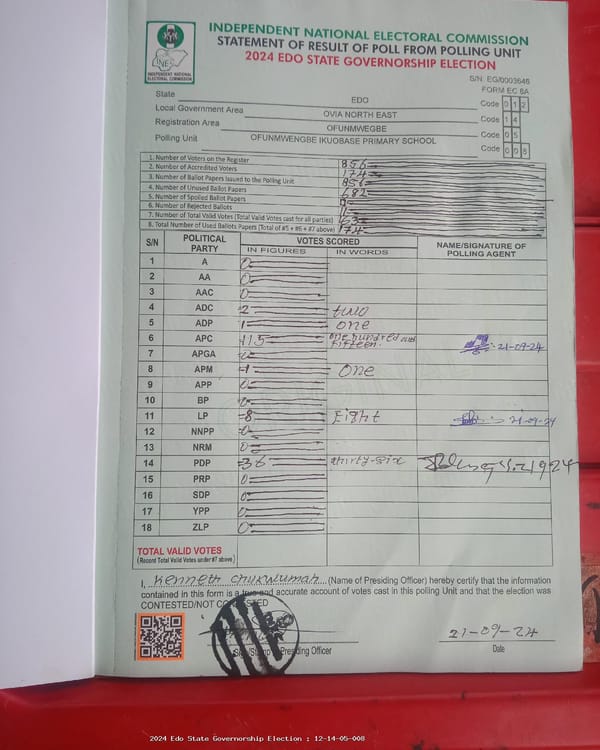 INDEPENDENT NATIONAL ELECTORAL COMMISSION
STATEMENT OF RESULT OF POLL FROM POLLING UNIT
2024 EDO STATE GOVERNORSHIP ELECTION
INEC
INDEPENDENT NATIONAL
ELECTORAL COMMISSION
S/N. EG/0003646
FORM EC 8A
State EDO Code 0 1 2
Local Government Area OVIA NORTH EAST Code 1 4
Registration Area OFUNMWEGBE Code 0 5
Polling Unit OFUNMWENGBE IKUOBASE PRIMARY SCHOOL Code 0 0 8
1. Number of Voters on the Register 856
2. Number of Accredited Voters 174
3. Number of Ballot Papers Issued to the Polling Unit 856
4. Number of Unused Ballot Papers 682
5. Number of Spoiled Ballot Papers 0
6. Number of Rejected Ballots 11
7. Number of Total Valid Votes (Total Valid Votes cast for all parties) 163
8. Total Number of Used Ballots Papers (Total of #5 + #6 + #7 above) 174
S/N POLITICAL PARTY VOTES SCORED NAME/SIGNATURE OF POLLING AGENT
IN FIGURES IN WORDS
1 A 0
2 AA 0
3 AAC 0
4 ADC 2 two
5 ADP 1 one
6 APC 115 one hundred and fifteen. 21-09-24
7 APGA 0
8 APM 1 One
9 APP 0
10 BP 0
11 LP 8 Eight 21-09-24
12 NNPP 0
13 NRM 0
14 PDP 36 thirty-six
15 PRP 0
16 SDP 0
17 YPP 0
18 ZLP 0
TOTAL VALID VOTES
(Record Total Valid Votes under #7 above)
I, Kenneth Chukwumah (Name of Presiding Officer) hereby certify that the information
contained in this form is a true and accurate account of votes cast in this polling Unit and that the election was
CONTESTED/NOT CONTESTED
Sign/Stamp of Presiding Officer
21-09-24
Date
2024 Edo State Governorship Election : 12-14-05-008